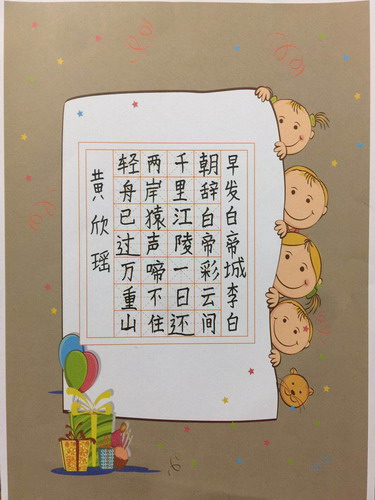 早发白帝城李白
朝辞白帝彩云间
千里江陵一日还
两岸猿声啼不住
轻舟已过万重山
黄欣瑶